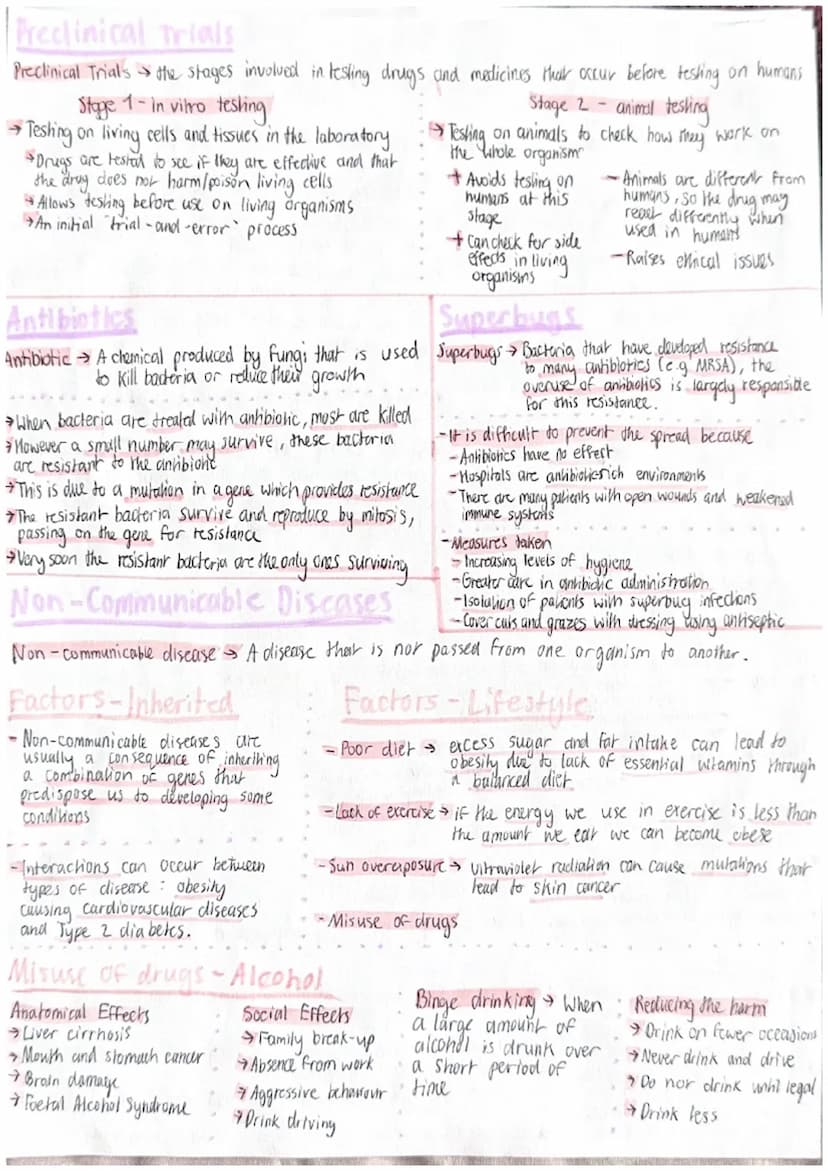 Preclinical Trials
Preclinical Trials → the stages involved in testing drugs and medicines that occur before testing on humans
Stage 1 - In vitro testing
→ Testing on living cells and tissues in the laboratory
→ Drugs are tested to see if they are effective and that
the drug does not harm/poison living cells
→ Allows testing before use on living organisms
→ An initial "trial-and-error" process
Stage 2 - animal testing
→ Testing on animals to check how they work on
the whole organism
+ Avoids testing on
humans at this
stage
+ Can check for side
effects in living
organisms
- Animals are different from
humans, so the drug may
react differently when
used in humans
- Raises ethical issues
Antibiotics
Antibiotic → A chemical produced by fungi that is used
to kill bacteria or reduce their growth
→ When bacteria are treated with antibiotic, most are killed
→ However a small number may survive, these bacteria
are resistant to the antibiotic
→ This is due to a mutation in a gene which provides resistance
→ The resistant bacteria survive and reproduce by mitosis,
passing on the gene for resistance
→ Very soon the resistant bacteria are the only ones surviving
Superbugs
Superbugs → Bacteria that have developed resistance
to many antibiotics (e.g MRSA), the
overuse of antibiotics is largely responsible
for this resistance.
- It is difficult to prevent the spread because
- Antibiotics have no effect
- Hospitals are antibiotic-rich environments
- There are many patients with open wounds and weakened
immune systems
- Measures taken
- Increasing levels of hygiene
- Greater care in antibiotic administration
- Isolation of patients with superbug infections
- Cover cuts and grazes with dressing using antiseptic
Non-Communicable Diseases
Non-communicable disease → A disease that is not passed from one organism to another.
Factors - Inherited
- Non-communicable diseases are
usually a consequence of inheriting
a combination of genes that
predispose us to developing some
conditions
- Interactions can occur between
types of disease: obesity
causing cardiovascular diseases
and Type 2 diabetes.
Factors - Lifestyle
- Poor diet → excess sugar and fat intake can lead to
obesity due to lack of essential vitamins through
a balanced diet
- Lack of exercise → if the energy we use in exercise is less than
the amount we eat we can become obese
- Sun overexposure → Ultraviolet radiation can cause mutations that
lead to skin cancer
- Misuse of drugs
Misuse of drugs - Alcohol
Anatomical Effects
→ Liver cirrhosis
→ Mouth and stomach cancer
→ Brain damage
→ Foetal Alcohol Syndrome
Social Effects
→ Family break-up
→ Absence from work
→ Aggressive behaviour
→ Drink driving
Binge drinking → When
a large amount of
alcohol is drunk over
a short period of
time
Reducing the harm
→ Drink on fewer occasions
→ Never drink and drive
→ Do not drink until legal
→ Drink less